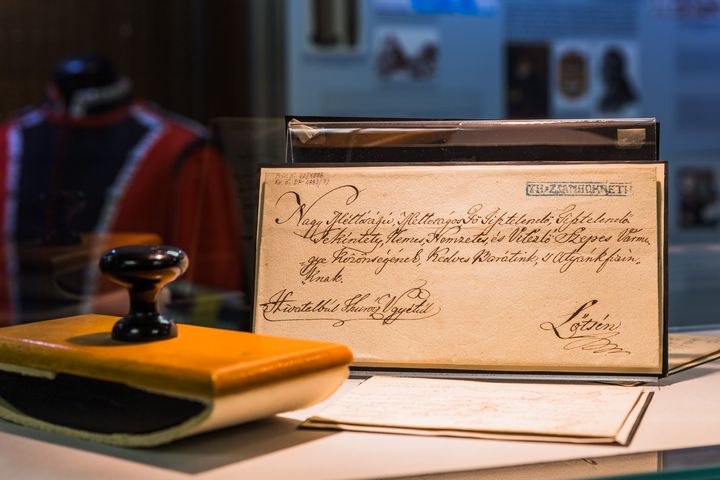 TH:ZSAMBOKRÉTH
Nagy Méltóságú, Méltóságos Fő Tiptelendő, Tiptelendő
Tekéntetes, Nemes, Nemzetes, és Vitézlő Szepes Várme-
gye Közönségének, Kedves Barátink, s Atyánkfiain-
knak.
Hivatalbul Thurótz Vgyétül
Lőtsén